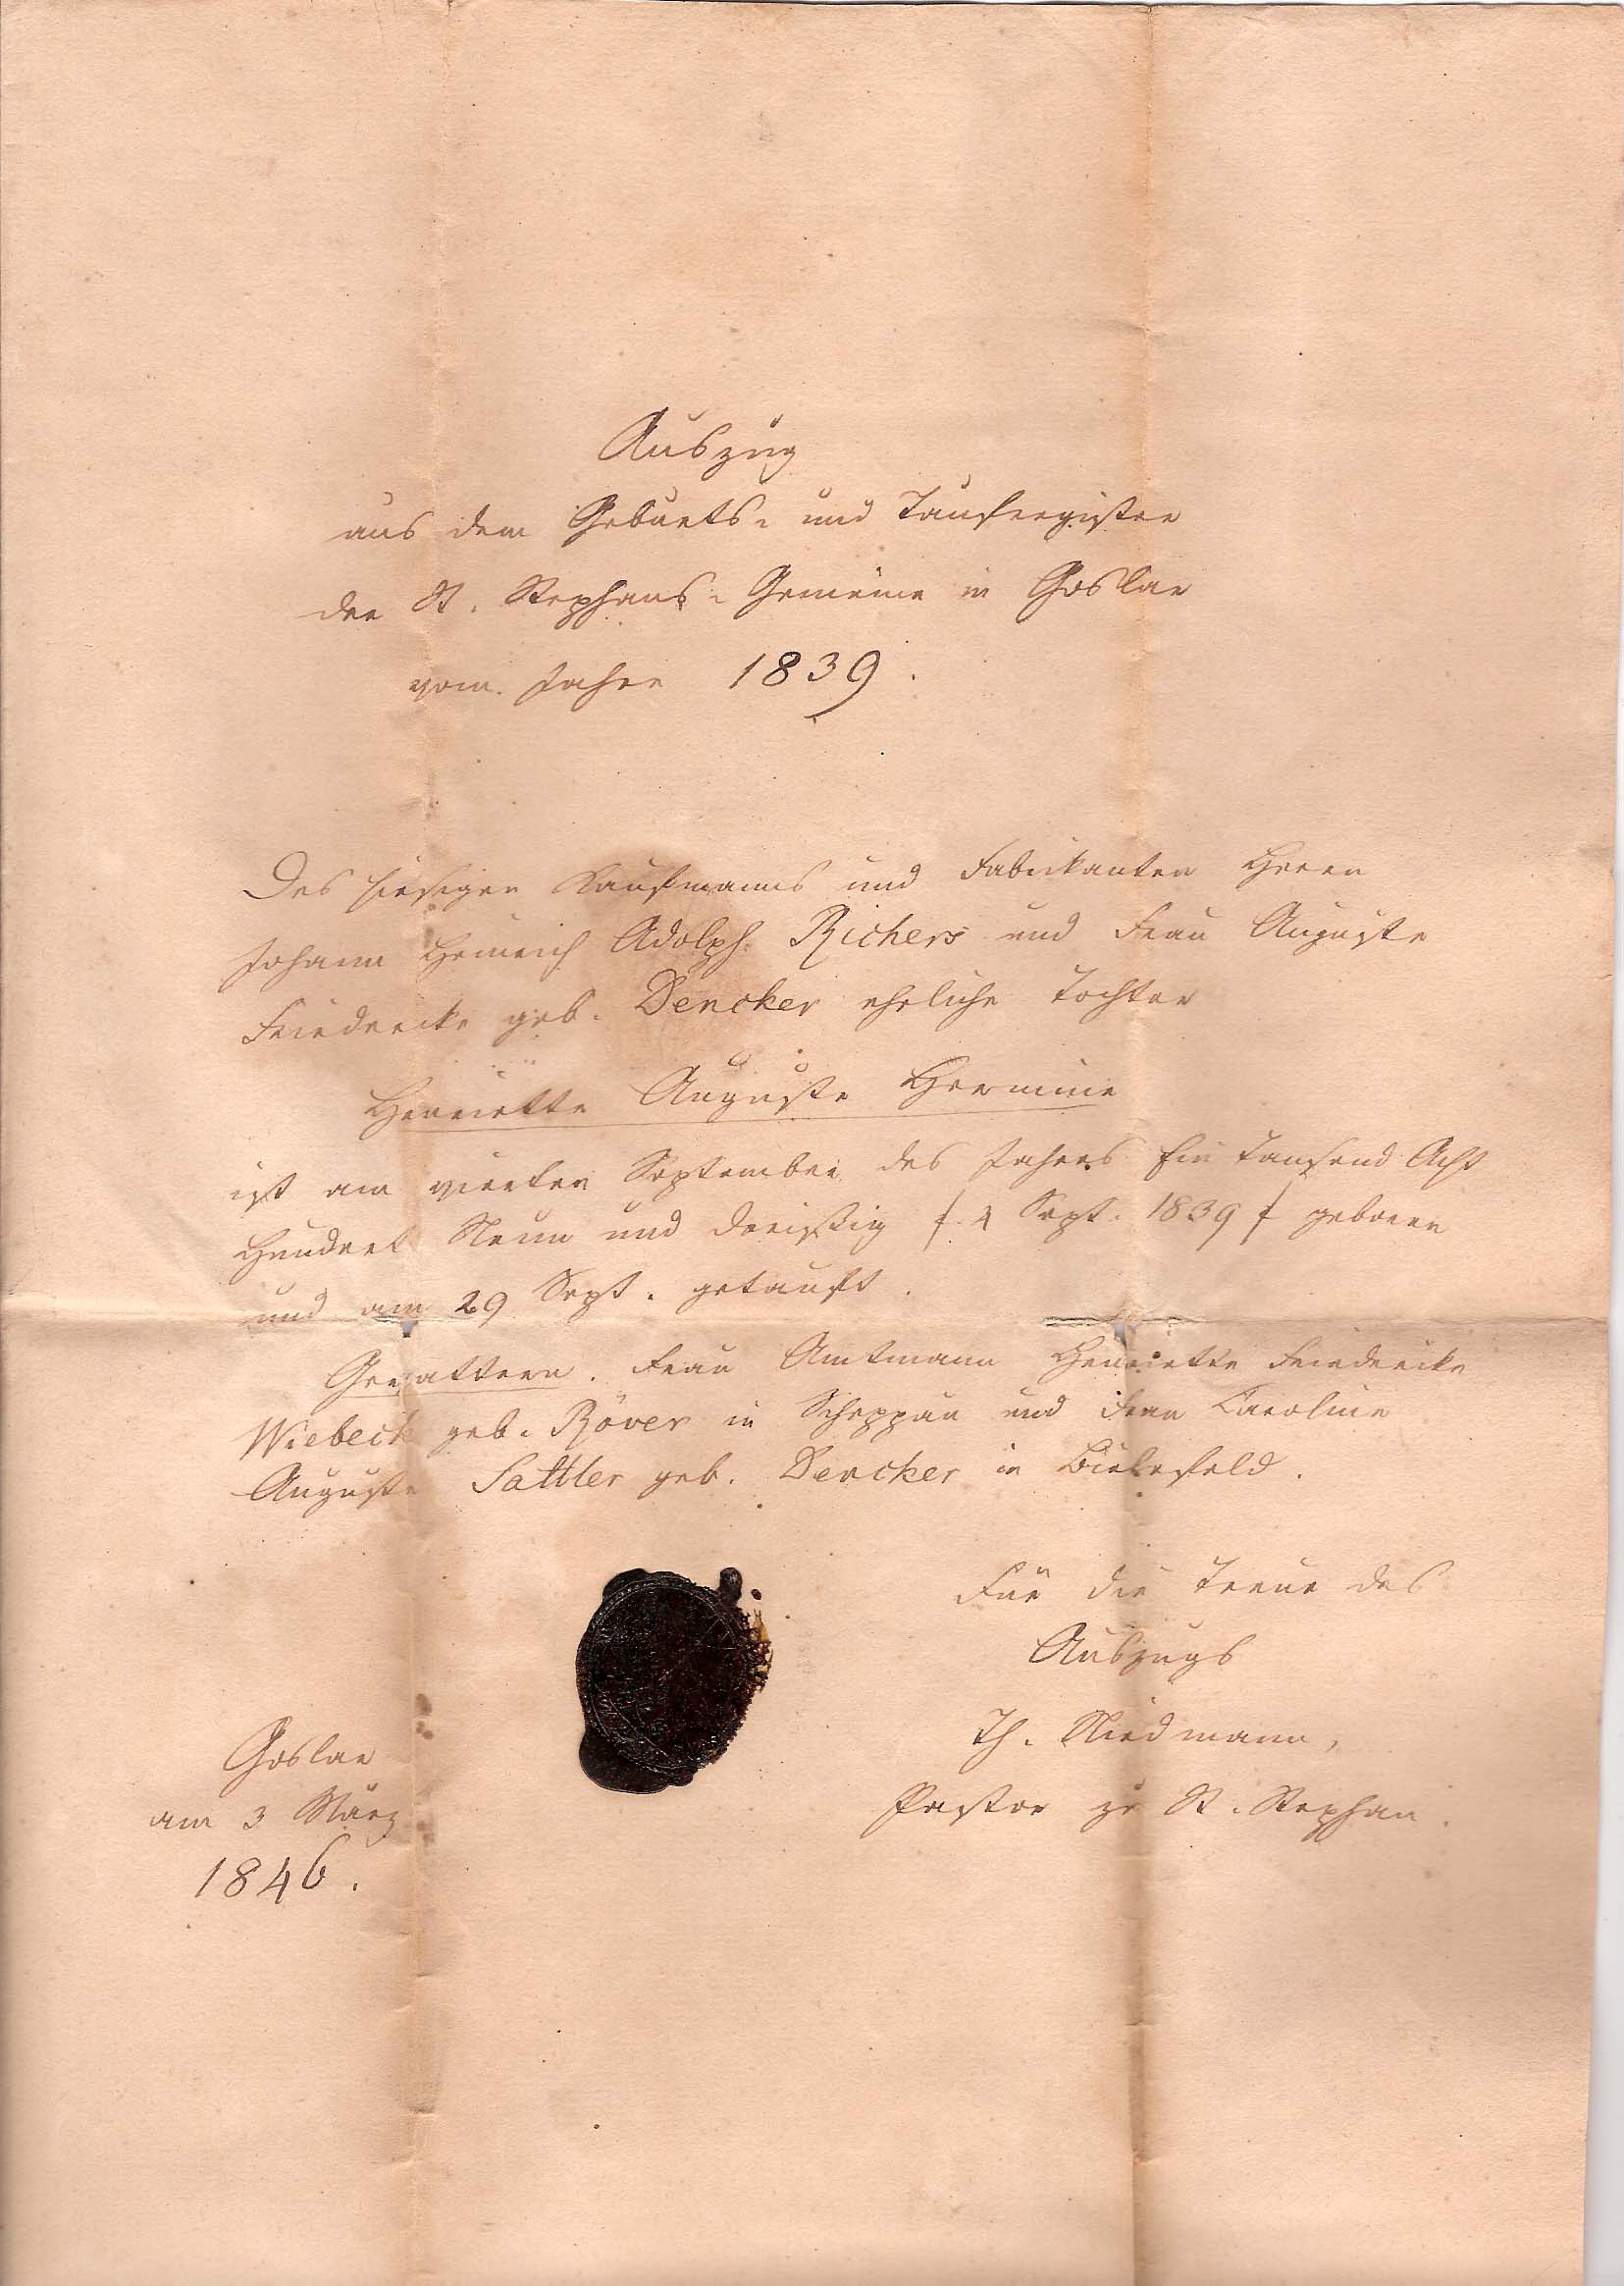 Auszug
aus dem Geburts- und Taufregister
der St. Stephans-Gemeine in Goslar
vom Jahre 1839.
Des hiesigen Kaufmanns und Fabrikanten Herrn
Johann Heinrich Adolph Richers und Frau Auguste
Friederike geb. Dencker eheliche Tochter
Henriette Auguste Hermine
ist am vierten September des Jahres Ein Tausend Acht
Hundert Neun und dreißig /. 4 Sept. 1839 / geboren
und am 29 Sept. getauft.
Gevattern. Frau Amtmann Henriette Friederike
Wiebeck geb. Röver in Scheppau und Frau Caroline
Auguste Sattler geb. Dencker in Bielefeld.
Für die Treue des
Auszugs
Th. Niedmann,
Pastor zu St. Stephan.
Goslar
am 3 März
1846.